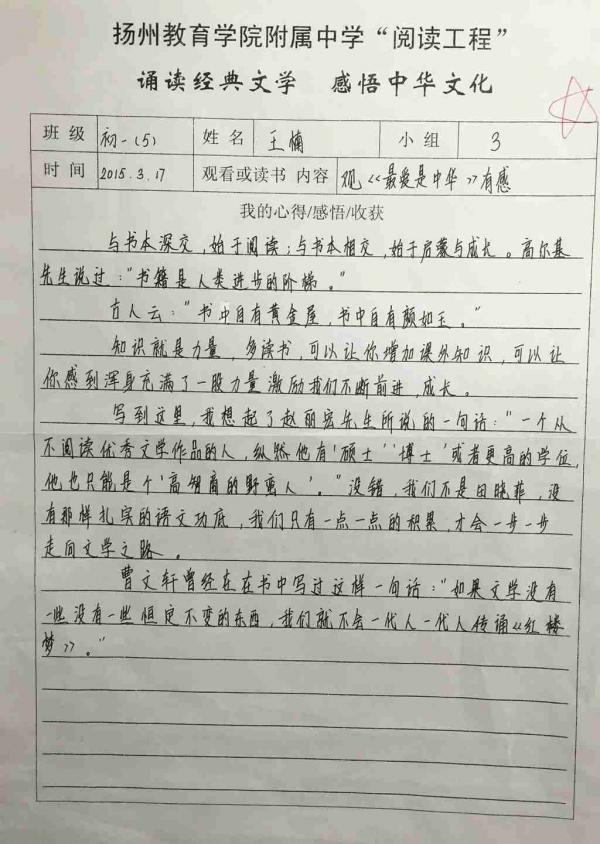 扬州教育学院附属中学“阅读工程”
诵读经典文学 感悟中华文化
班级 初一(5) 姓名 王楠 小组 3
时间 2015.3.17 观看或读书 内容 观《最爱是中华》有感
我的心得/感悟/收获
与书本深交，始于阅读；与书本相交，始于启蒙与成长。高尔基
先生说过：“书籍是人类进步的阶梯。”
古人云：“书中自有黄金屋，书中自有颜如玉。”
知识就是力量，多读书，可以让你增加课外知识，可以让
你感到浑身充满了一股力量激励我们不断前进，成长。
写到这里，我想起了赵丽宏先生所说的一句话：“一个从
不阅读优秀文学作品的人，纵然他有‘硕士’‘博士’或者更高的学位，
他也只能是个‘高智商的野蛮人’。”没错，我们不是田晓菲，没
有那样扎实的语文功底，我们只有一点一点的积累，才会一步一步
走向文学之路。
曹文轩曾经在在书中写过这样一句话：“如果文学没有
一些没有一些恒定不变的东西，我们就不会一代人一代人传诵《红楼
梦》。”